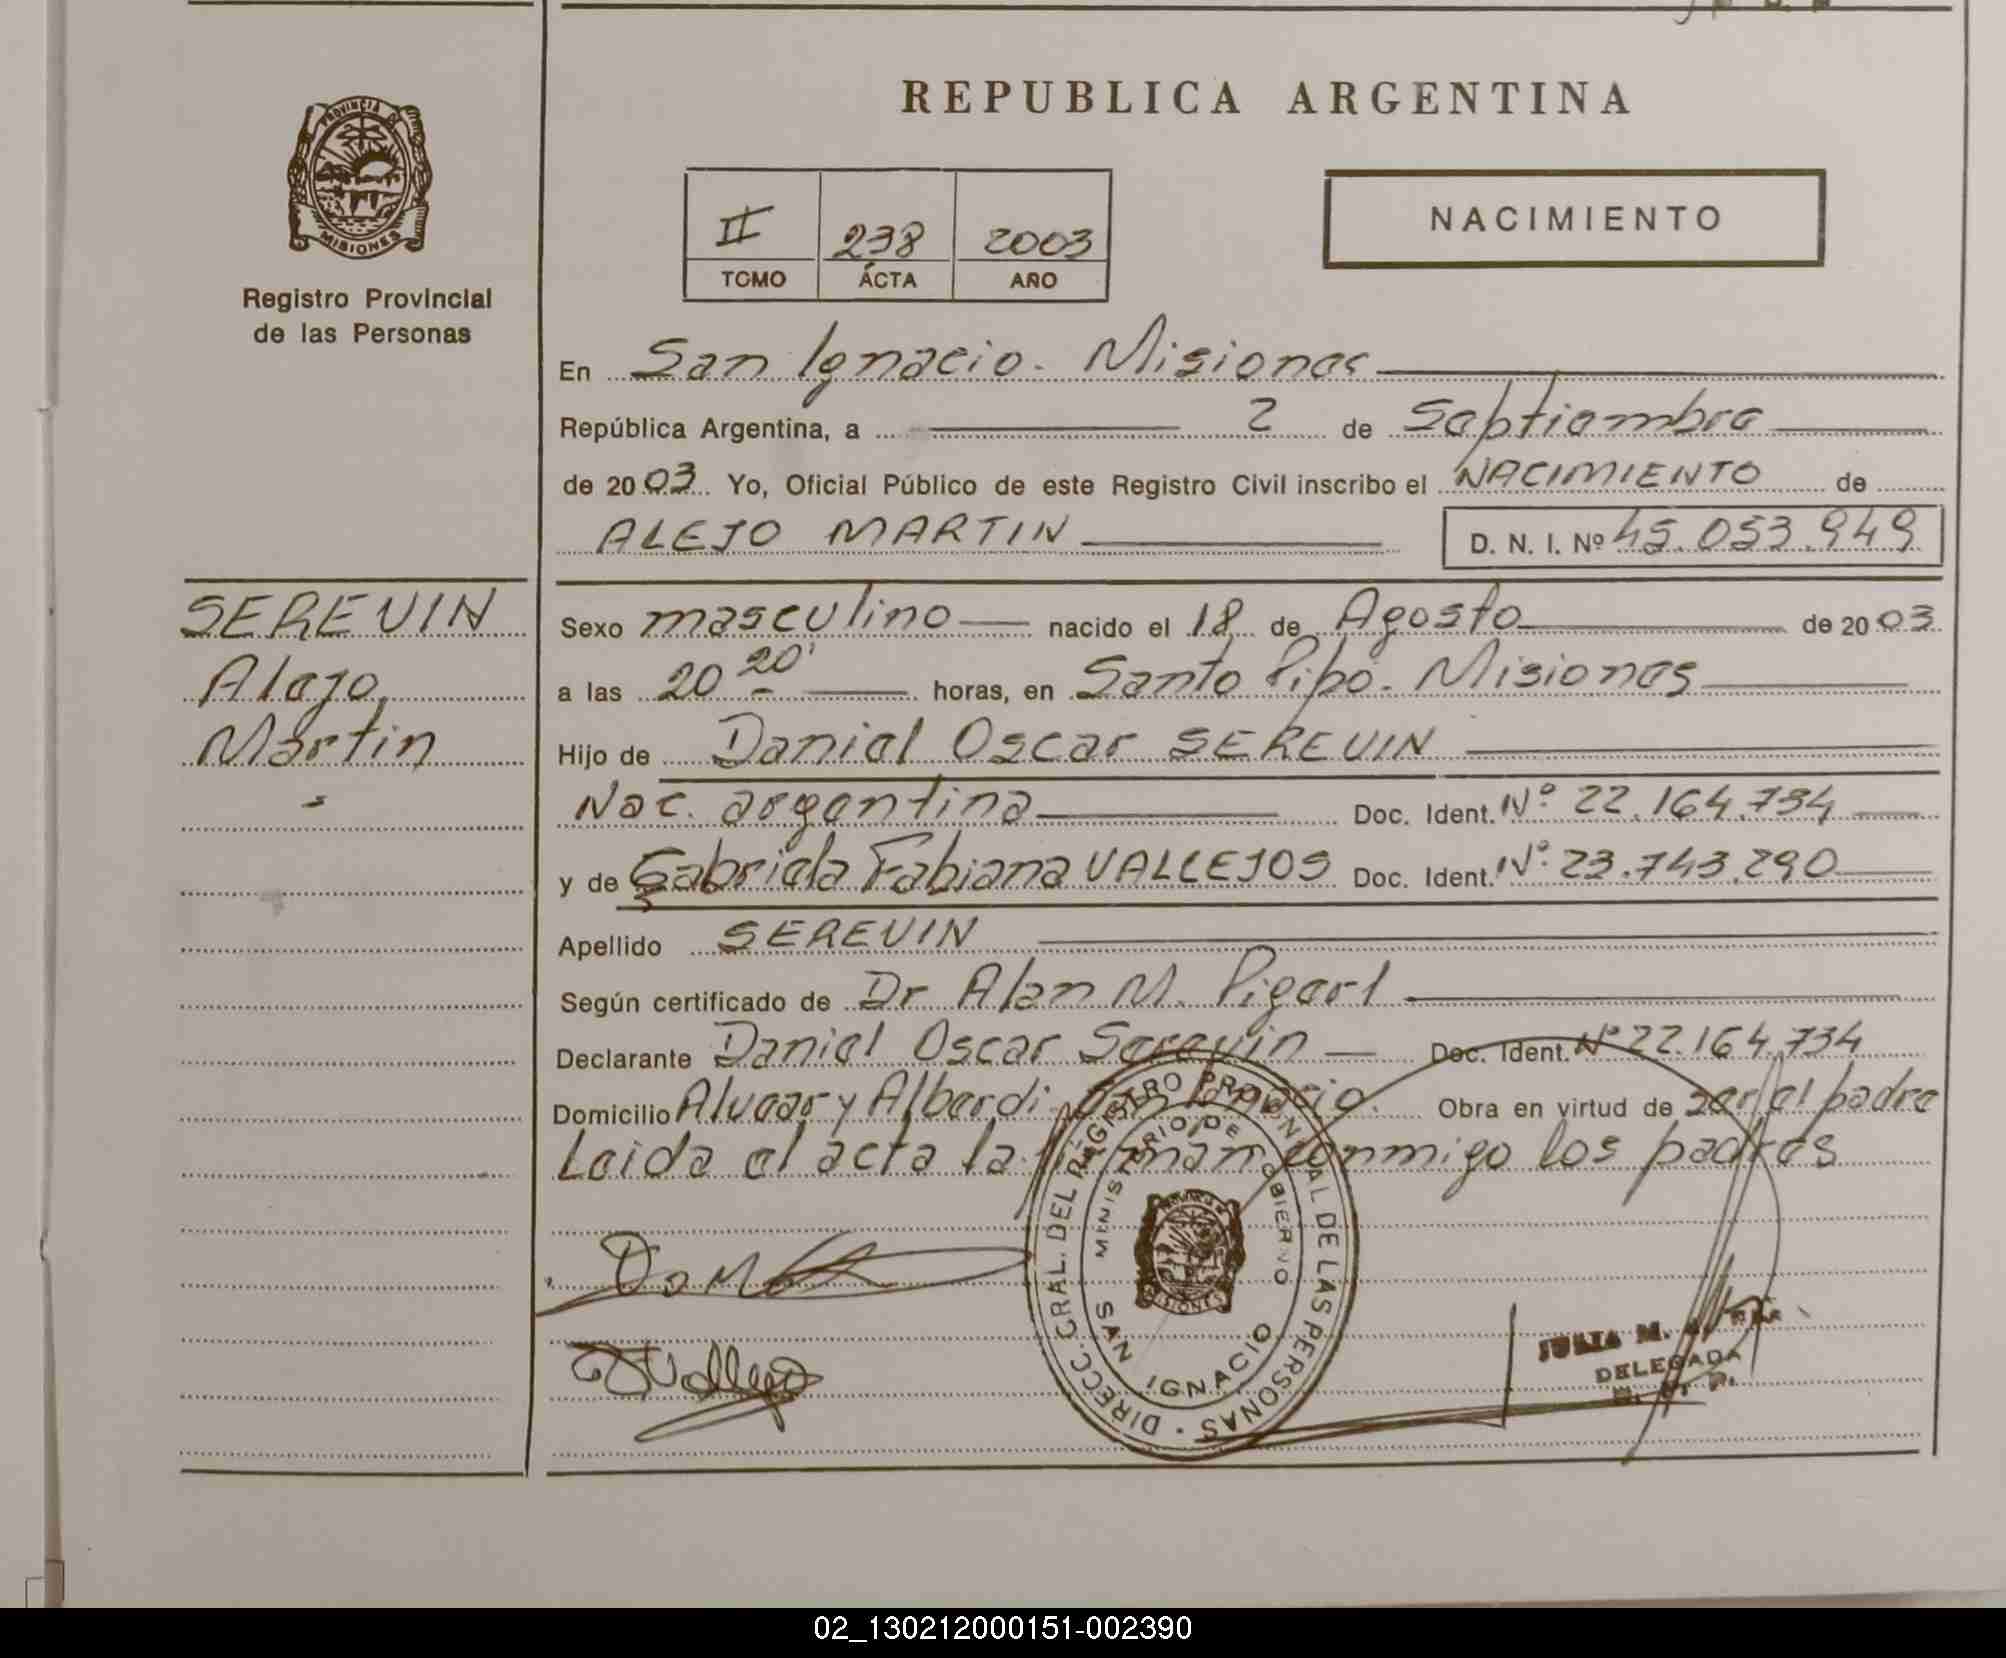 REPUBLICA ARGENTINA
PROVINCIA DE
MISIONES
Registro Provincial
de las Personas
II 238 2003
TOMO ACTA AÑO
NACIMIENTO
En San Ignacio. Misiones
República Argentina, a 2 de Septiembre
de 2003 Yo, Oficial Público de este Registro Civil inscribo el NACIMIENTO de
ALEJO MARTIN D. N. I. Nº 45.053.949
SEREVIN
Alejo
Martin
Sexo masculino nacido el 18 de Agosto de 2003
a las 20 20' horas, en Santo Pipó. Misiones
Hijo de Daniel Oscar SEREVIN
Nac. argentina Doc. Ident. Nº 22.164.734
y de Gabriela Fabiana VALLEJOS Doc. Ident. Nº 23.743.290
Apellido SEREVIN
Según certificado de Dr Alan M.
Declarante Daniel Oscar Serevin Doc. Ident. Nº 22.164.734
Domicilio Alvear y Alberdi. San Ignacio. Obra en virtud de ser el padre
Leida el acta la firman conmigo los padres
DIRECC. GRAL. DEL REGISTRO PROVINCIAL DE LAS PERSONAS
MINISTERIO DE GOBIERNO
SAN IGNACIO
MISIONES
JULIA M.
DELEGADA
02_130212000151-002390